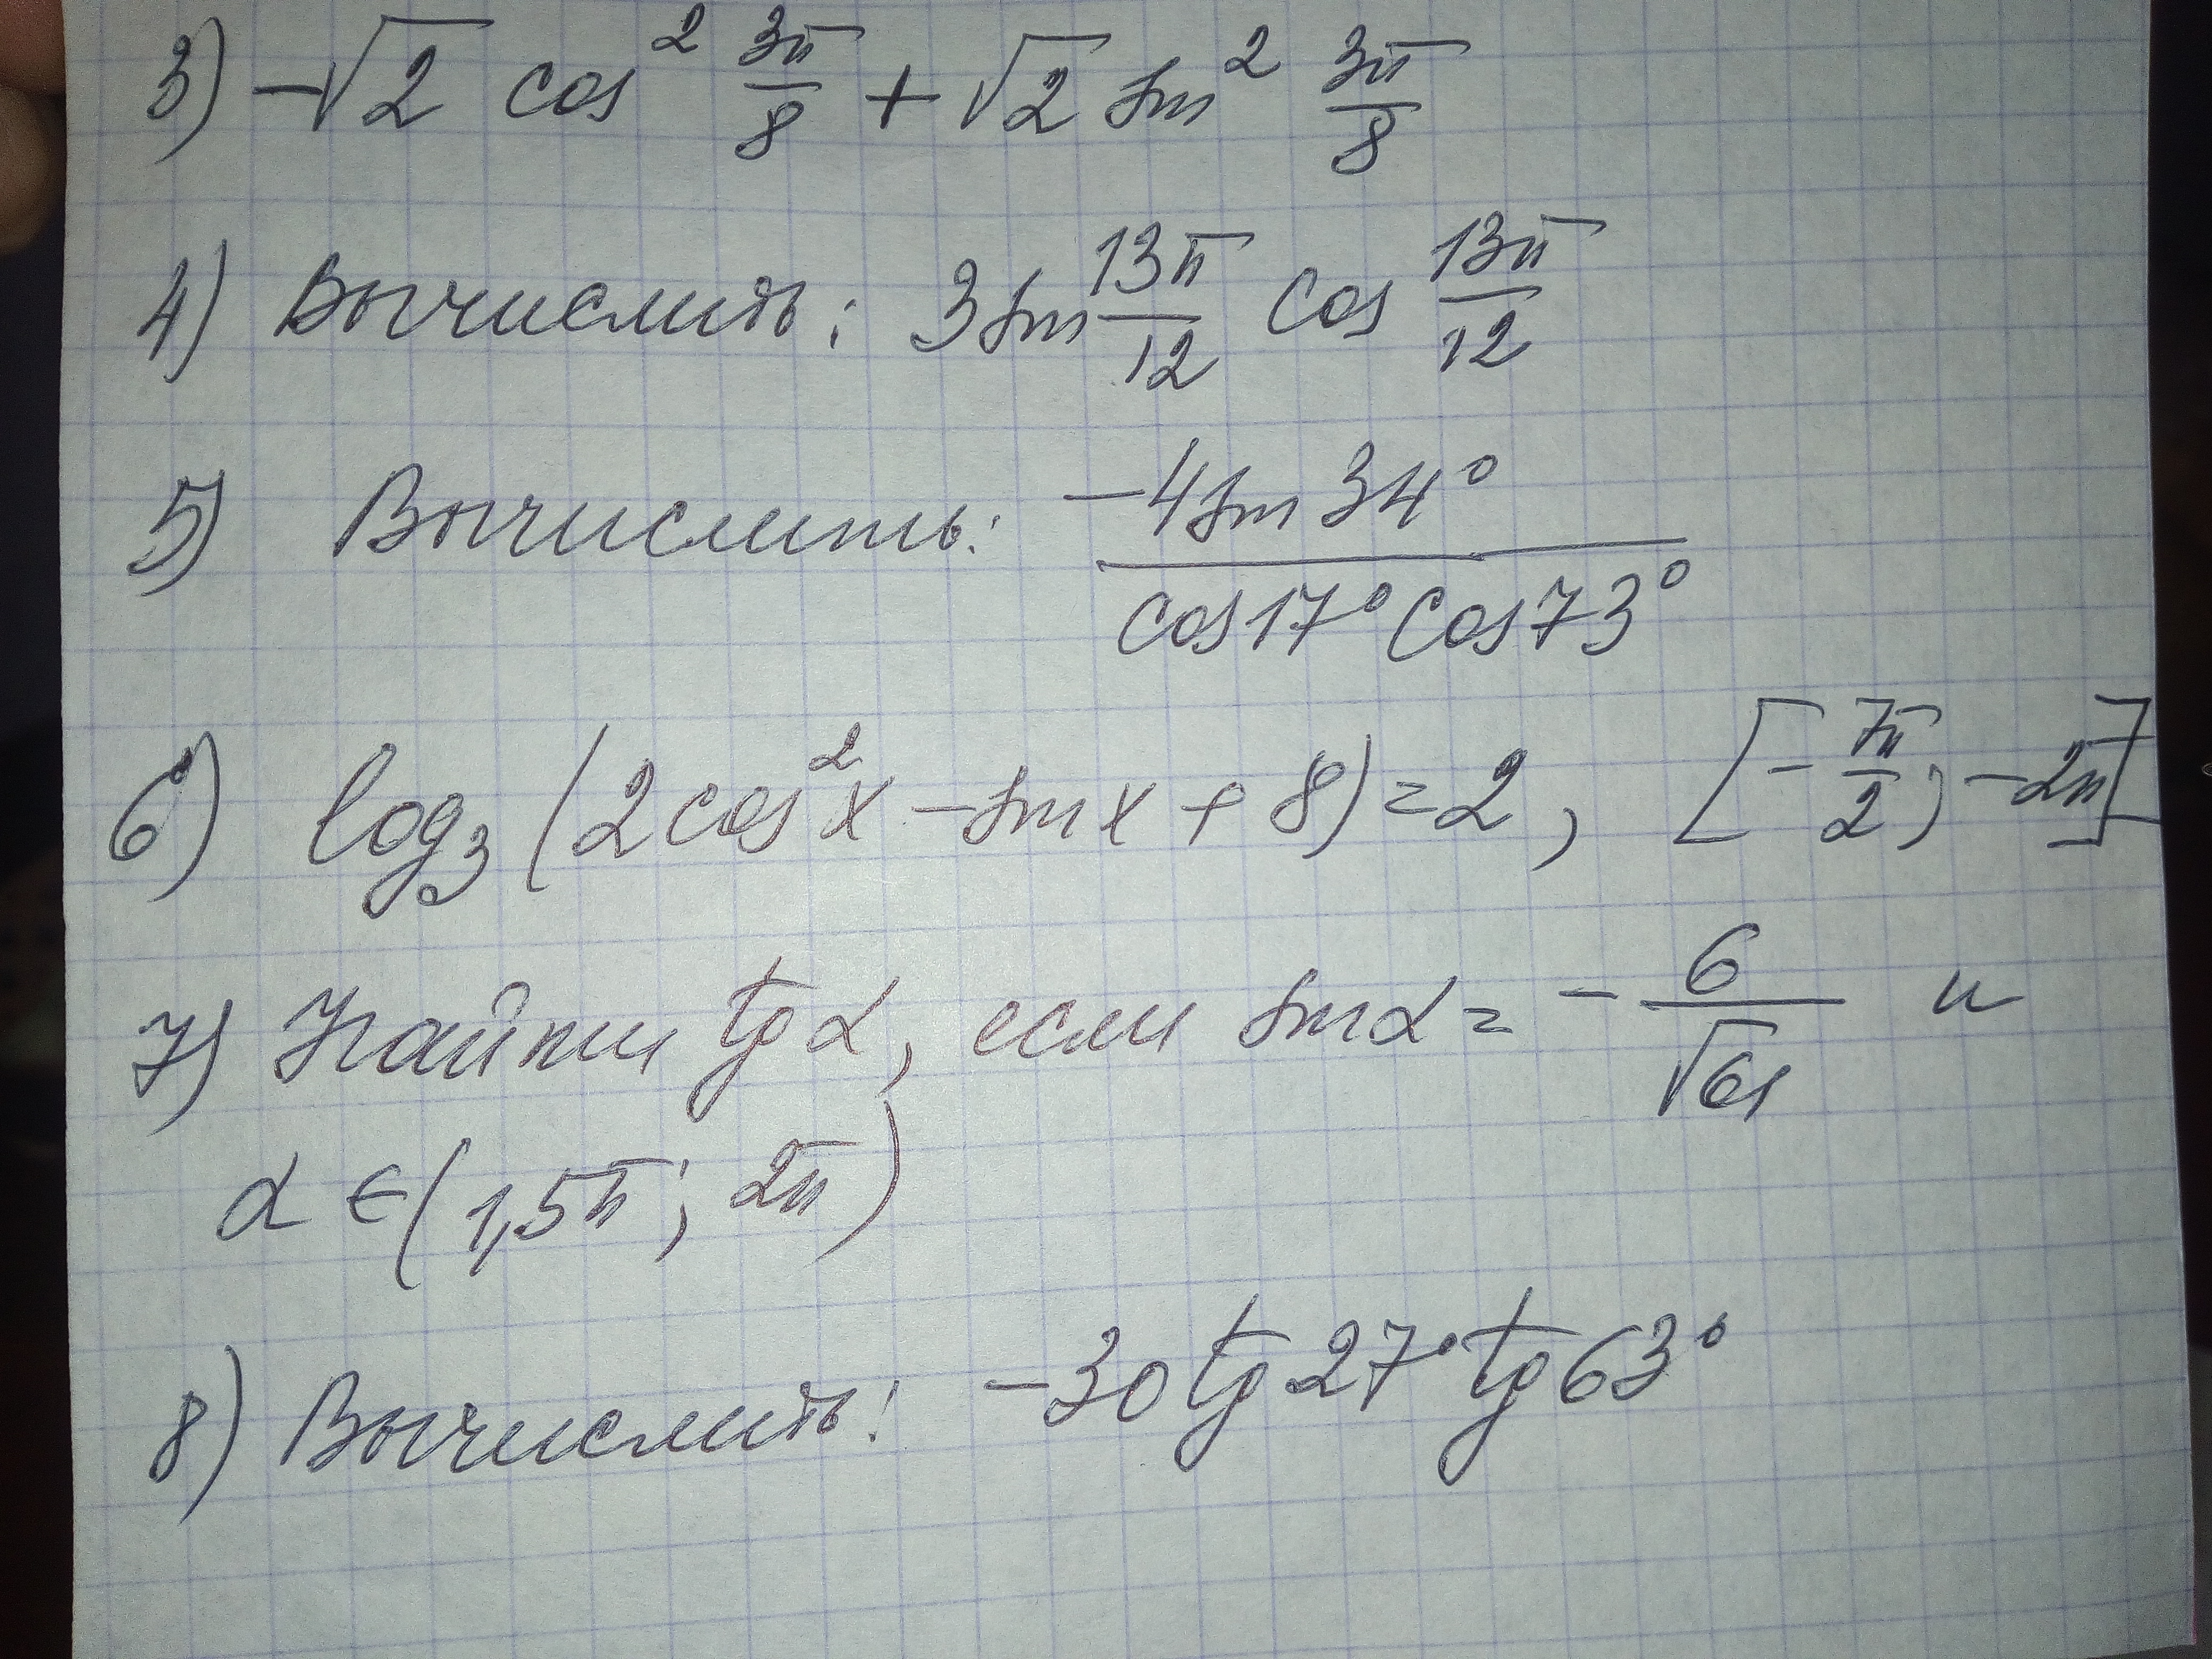 3) -√2 cos² 3π/8 + √2 sin² 3π/8
4) Вычислить: 3 sin 13π/12 cos 13π/12
5) Вычислить: -4 sin 34° / cos 17° cos 73°
6) log₃ (2cos²x - sin x + 8) = 2, [-7π/2; -2π]
7) Найти tg α, если sin α = -6/√61 и
α ∈ (1,5π; 2π)
8) Вычислить: -30 tg 27° tg 63°